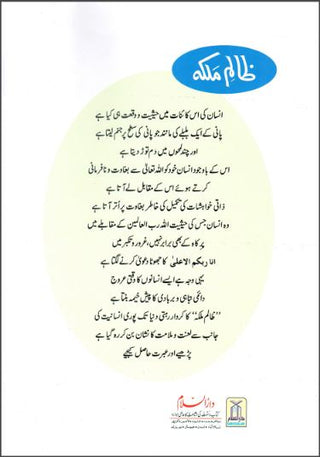 ظالم ملکہ
انسان کی اس کائنات میں حیثیت و وقعت ہی کیا ہے
پانی کے ایک بلبلے کی مانند جو پانی کی سطح پر جنم لیتا ہے
اور چند لمحوں میں دم توڑ دیتا ہے
اس کے باوجود انسان خود کو اللہ تعالیٰ سے بغاوت و نافرمانی
کرتے ہوئے اس کے مقابل لے آتا ہے
ذاتی خواہشات کی تکمیل کی خاطر بغاوت پر اتر آتا ہے
وہ انسان جس کی حیثیت اللہ رب العالمین کے مقابلے میں
پرکاہ کے بھی برابر نہیں، غرور و تکبر میں
انا ربکم الاعلیٰ کا جھوٹا دعویٰ کرنے لگتا ہے
یہی وجہ ہے ایسے انسانوں کا وقتی عروج
دائمی تباہی و بربادی کا پیش خیمہ بنتا ہے
"ظالم ملکہ" کا کردار رہتی دنیا تک پوری انسانیت کی
جانب سے لعنت و ملامت کا نشان بن کر رہ گیا ہے
پڑھیے اور عبرت حاصل کیجیے
دارالسلام
کتاب و سنت کی اشاعت کا عالمی ادارہ